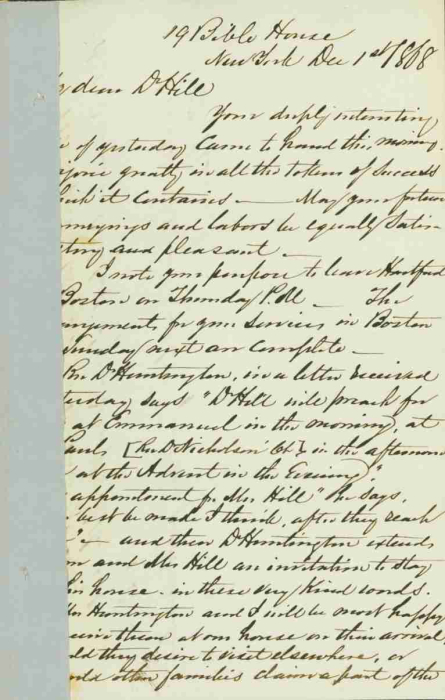 19 Bible House
New York Dec 1st 1868
dear Dr Hill
Your deeply interesting
of yesterday came to hand this morning.
greatly in all the tokens of success
it contains — May your future
and labors be equally satis-
and pleasant —
I note your purpose to leave Hartford
Boston on Thursday P.M — The
for your services in Boston
Sunday next are complete —
Dr Huntington, in a letter received
says "Dr Hill will preach for
at Emmanuel in the morning, at
[Rev Dr Nicholson's Ch] in the afternoon
at the Advent in the Evening."
appointment for Mrs Hill" he says,
best be made I think, after they reach
— and then Dr Huntington extends
and Mrs Hill an invitation to stay
his house — in these very kind words.
Mrs Huntington and I will be most happy
them at our house on their arrival
they desire to visit elsewhere, or
other families claim a part of the